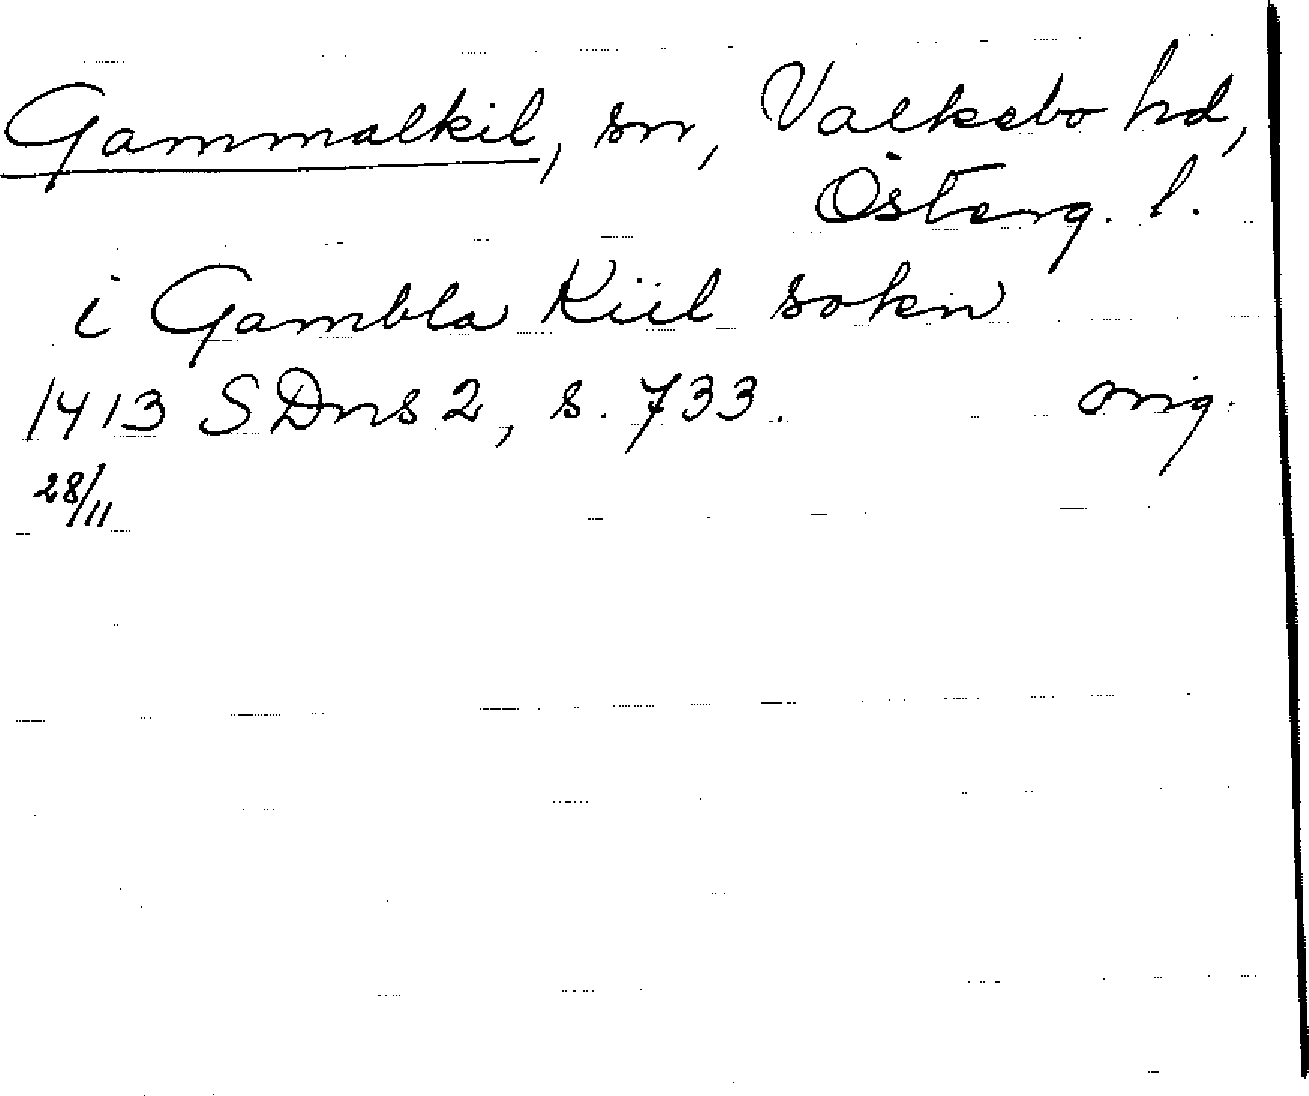 Gammalkil, sn, Valkebo hd,
Österg. l.
i Gambla Kiil sokn
1413 SDns 2, s. 733. orig.
28/11